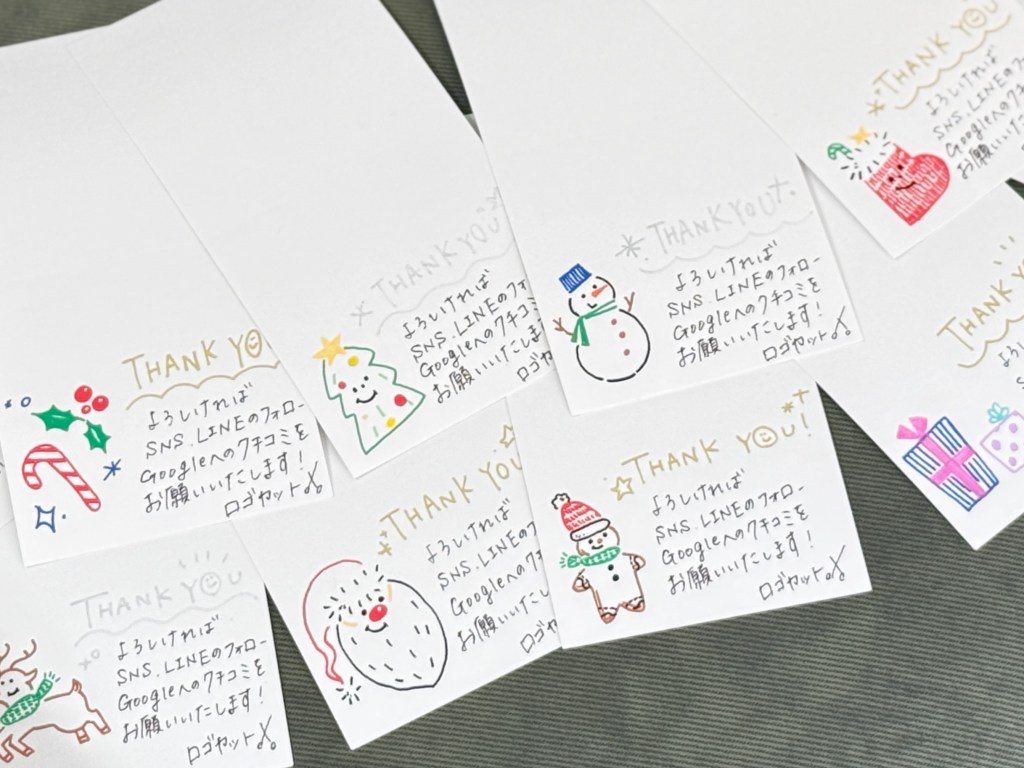 THANK YOU
よろしければ
SNS.LINEのフォロー
Googleへのクチコミを
お願いいたします!
ロゴヤット
THANK YOU
よろしければ
SNS.LINEのフォロ
Googleへのクチコミ
お願いいたします
ロゴヤッ
THANK YOU
よろしければ
SNS.LINEのフォロー
Googleへのクチコミを
お願いいたします!
ロゴヤット
THANK YOU
よろしければ
SNS.LINEのフォロ
Googleへのクチコミ
お願いいたし
THANK YOU
よろしければ
SNS.LINEのフォロー
Googleへのクチコミを
お願いいたします!
ロゴヤット
THANK YOU
よろしければ
SNS.LINEのフォ
Googleへのクチ
お願いいたし
ロゴヤ
THANK YOU!
よろしければ
SNS.LINEのフォロー
Googleへのクチコミを
お願いいたします!
ロゴヤット
THANK Y
よろし